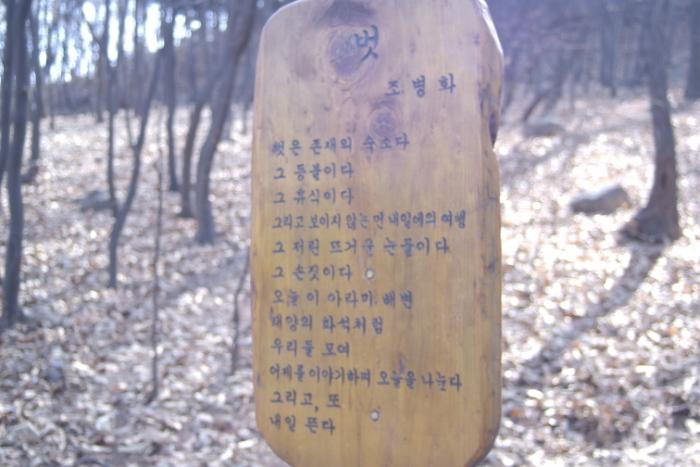 벗
조병화
벗은 존재의 숙소다
그 등불이다
그 휴식이다
그리고 보이지 않는 먼 내일에의 여행
그 저린 뜨거운 눈물이다
그 손짓이다
오늘 이 아라미 해변
태양의 화석처럼
우리들 모여
어제를 이야기하며 오늘을 나눈다
그리고, 또
내일 뜬다